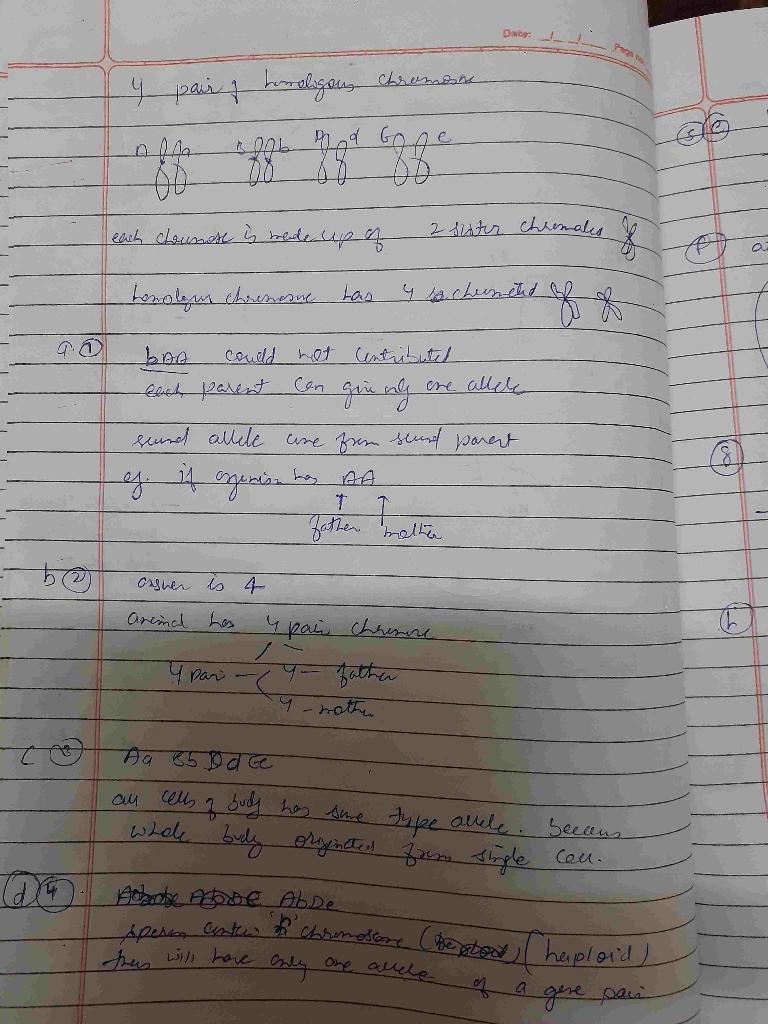 Date: / / Page No.
4 pair of homologous chromosome
A a B b D d E e
each chromosome is made up of 2 sister chromatids
homologous chromosome has 4 chromatid
a. ① bAA could not contributed
each parent can give only one allele
second allele come from second parent
eg. if organism has AA
father mother
b ② answer is 4
animal has 4 pair chromosome
4 pair 4 - father
4 - mother
c ③ Aa Bb Dd Ee
all cells of body has same type allele. because
whole body originated from single cell.
d ④ AbDe
sperm contain 'h' chromosome (haploid)
they will have only one allele of a gene pair
s e
f
g
h